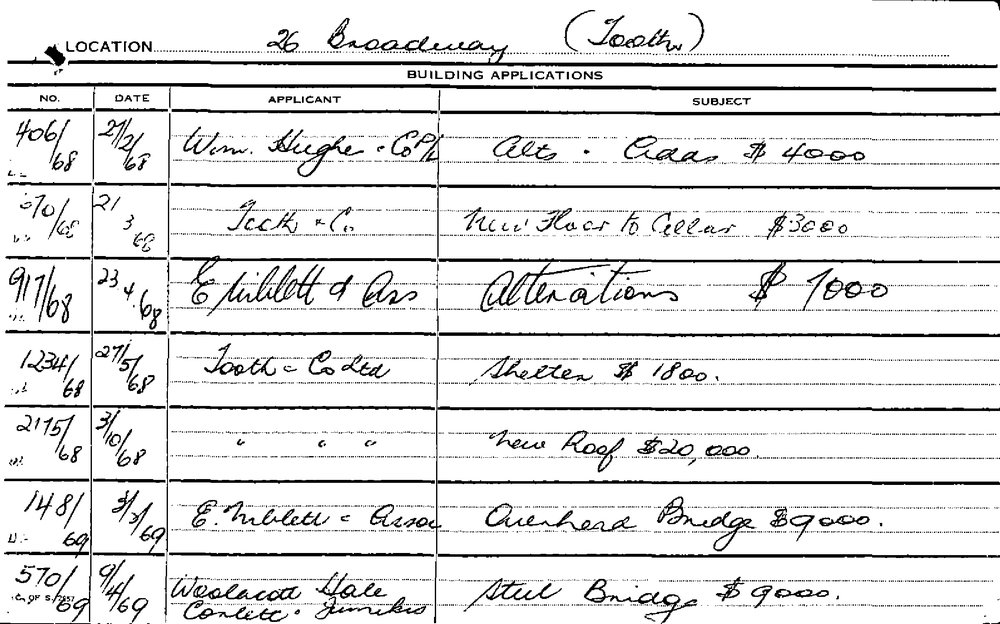 LOCATION 26 Broadway (Tooth)
BUILDING APPLICATIONS
NO. DATE APPLICANT SUBJECT
406/68 27/2/68 Wm. Hughes & Co P/L Alts & Adds $4000
570/68 21 3 68 Tooth & Co New Floor to Cellar $3000
917/68 23.4.68 E Niblett & Ass Alterations $ 7000
1234/68 27/5/68 Tooth & Co Ltd Shelter $ 1800.
2175/68 3/10/68 " " " New Roof $20,000.
1481/69 3/3/69 E. Niblett & Assoc Overhead Bridge $9000.
570/69 9/4/69 Woolacott Hale Steel Bridge $9000.
Corlett &